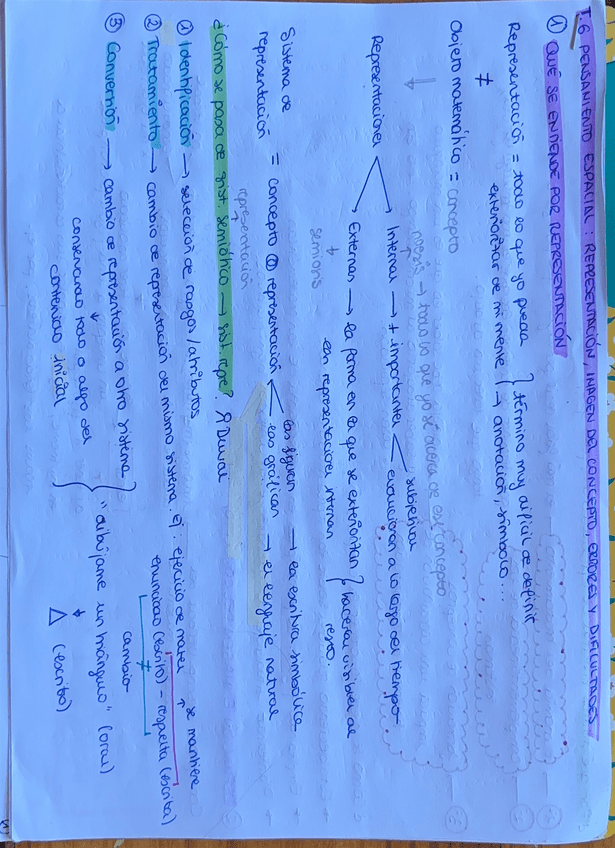 T.6 PENSAMIENTO ESPACIAL: REPRESENTACIÓN, IMAGEN DEL CONCEPTO, ERRORES Y DIFICULTADES
① QUÉ SE ENTIENDE POR REPRESENTACIÓN
Representación = todo lo que yo pueda exteriorizar de mi mente } término muy difícil de definir
→ anotación, símbolo...
≠
Objeto matemático = concepto
noesis → todo lo que yo sé acerca de ese concepto
Representaciones
Internas → + importantes
subjetivas
evolucionan a lo largo del tiempo
Externas → la forma en la que se exteriorizan las representaciones internas } hacerlas visibles al resto.
semiosis
Sistema de representación = concepto ⓪ representación
las figuras → la escritura simbólica
las gráficas → el lenguaje natural
representación
¿Cómo se pasa de sist. semiótico → sist. repre? R Duval
① Identificación → selección de rasgos/atributos
② Tratamiento → cambio de representación del mismo sistema. ej: ejercicio de mates
se mantiene
enunciado (escrito) - respuesta (escrita)
≠
③ Conversión → cambio de representación a otro sistema
conservando todo o algo del contenido inicial
cambio
"dibújame un triángulo" (oral)
△ (escrito)